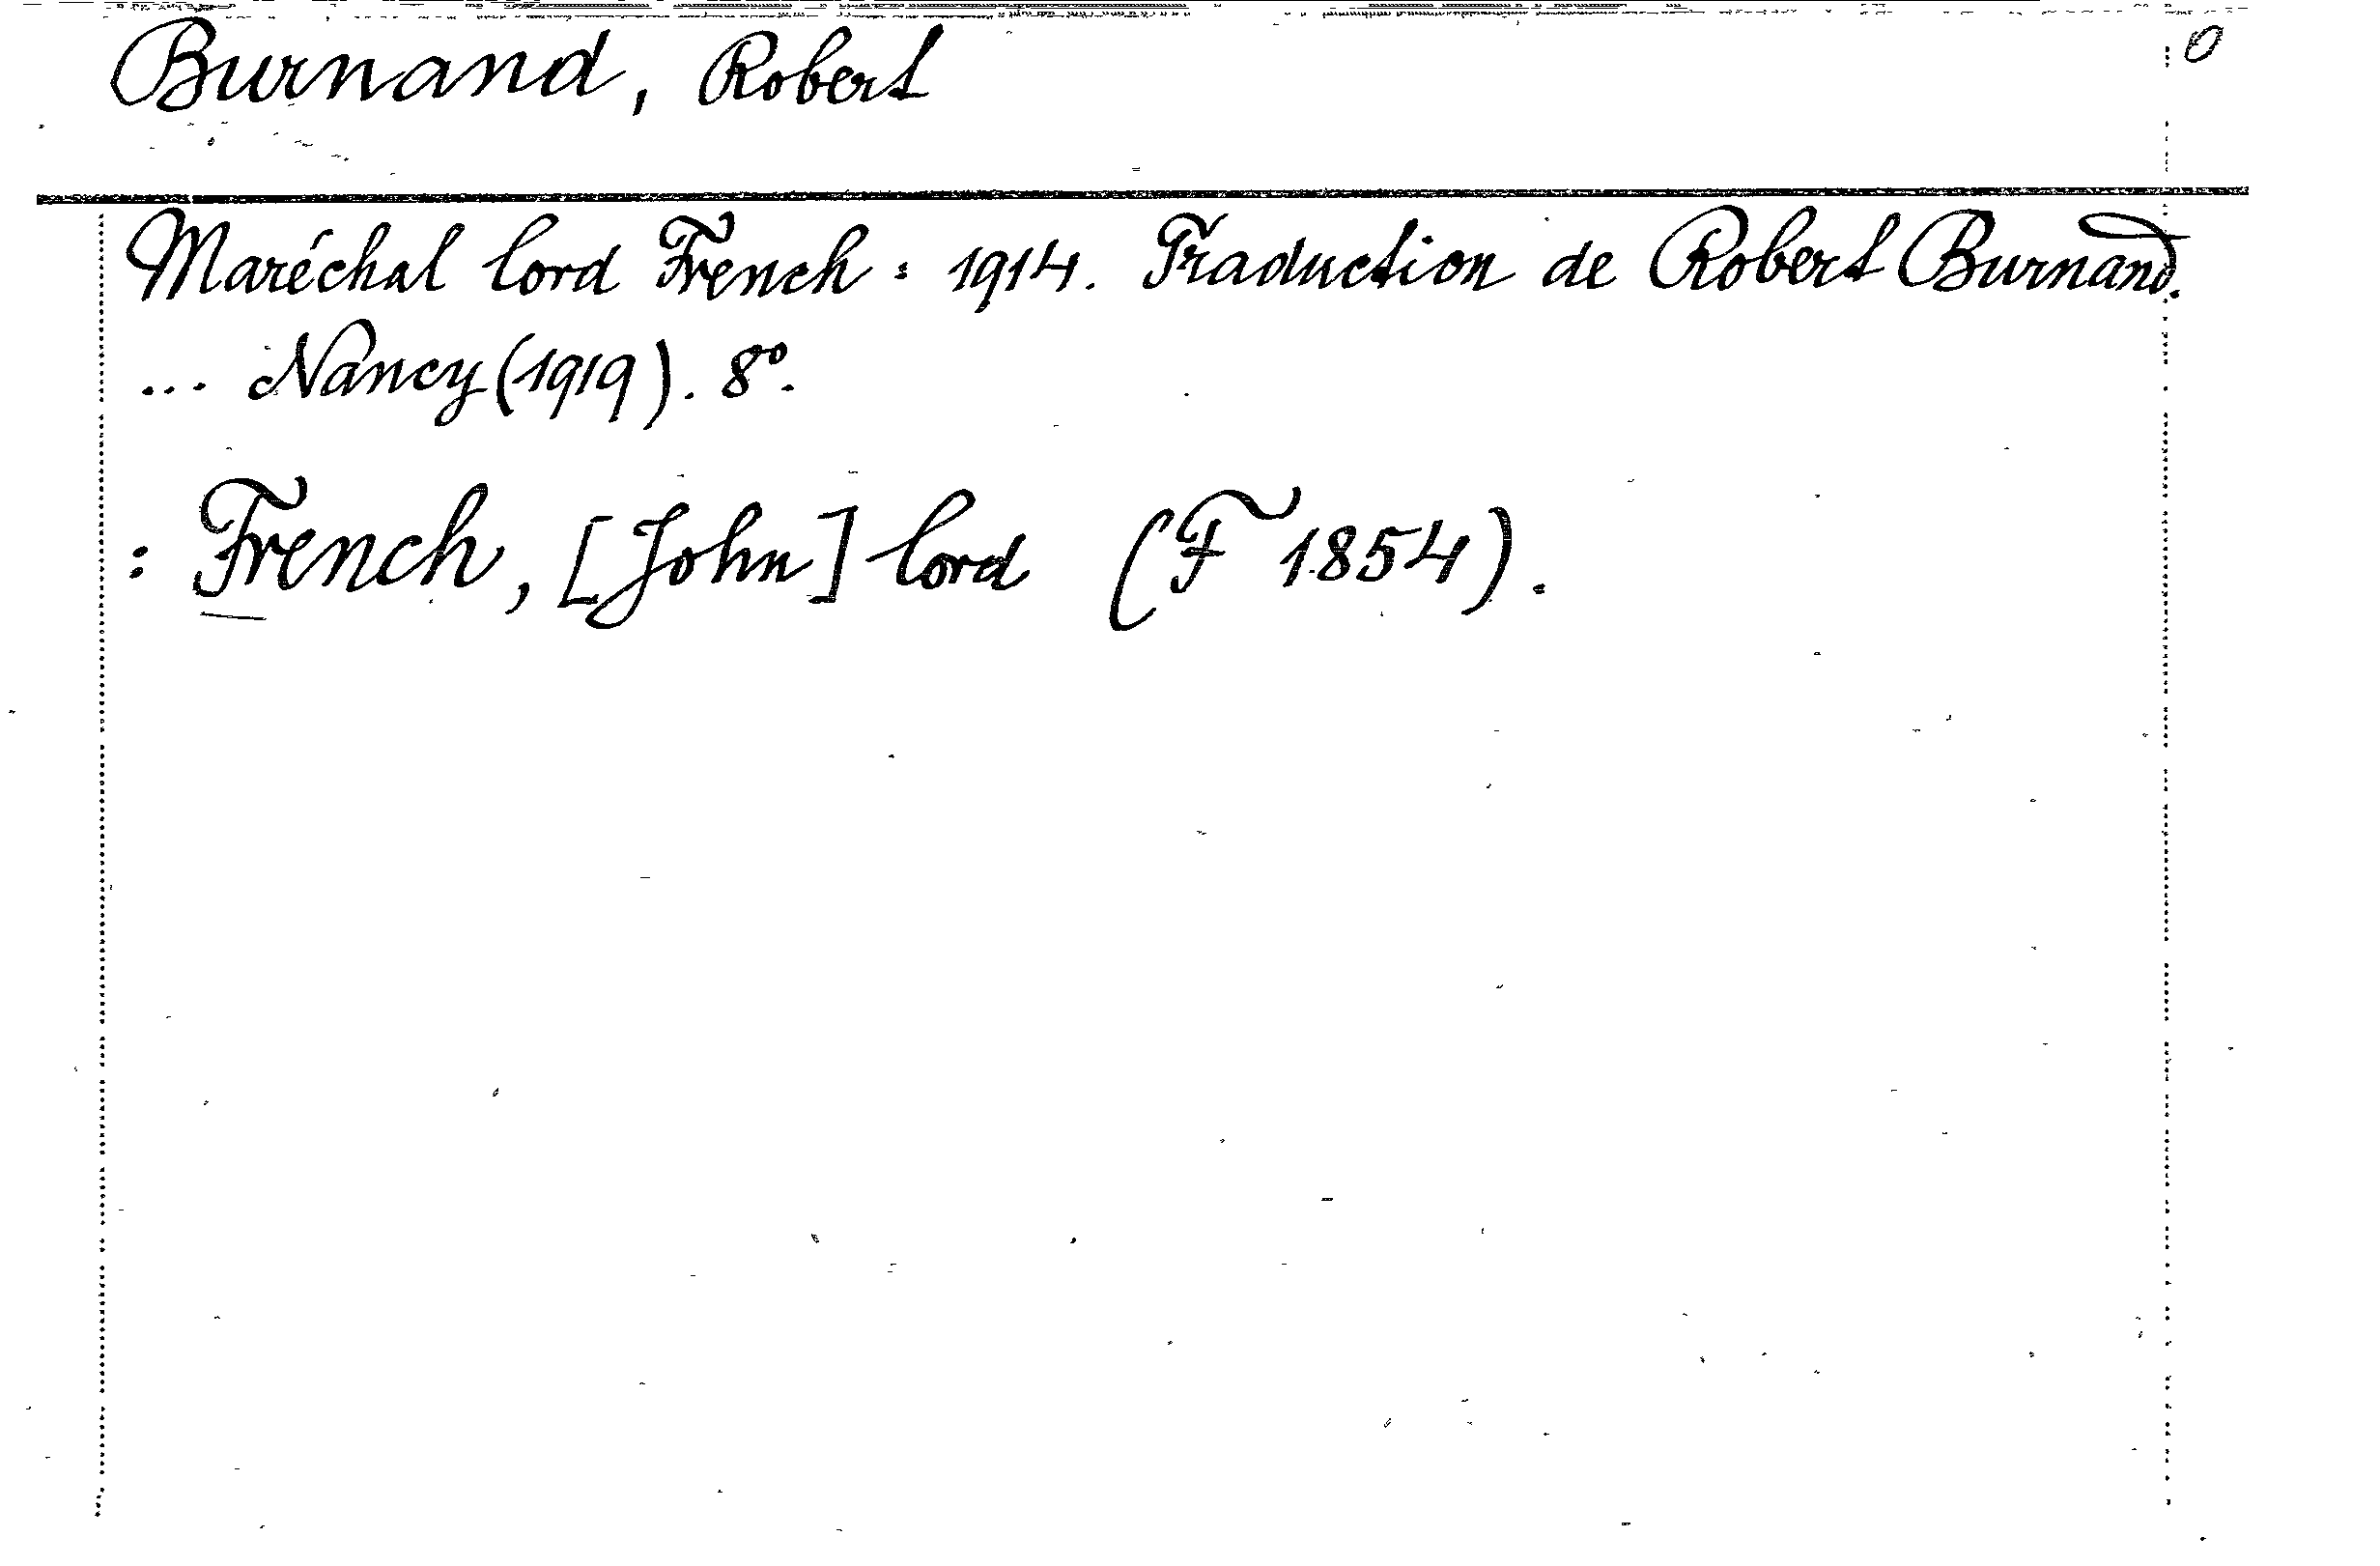 Burnand, Robert
0
Maréchal lord French : 1914. Traduction de Robert Burnand.
... Nancy (1919). 8º.
: French, [John] lord (F 1854).